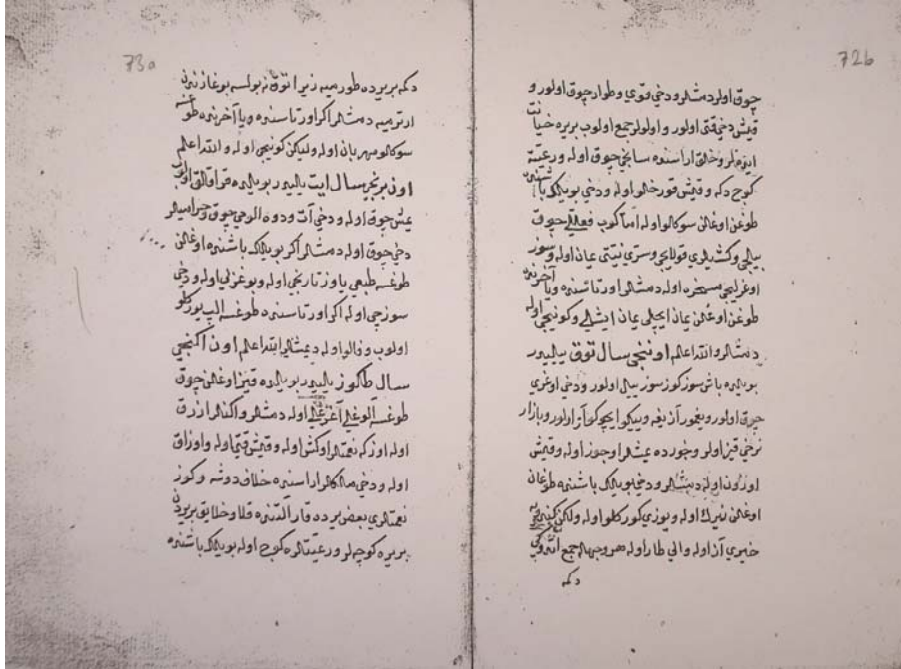 72b
چوق اولور دمشلر و دخی قوی و طوار چوق اولور و
قیش دخی قتی اولور و اولولر جمع اولوب بریره خیانت
ایده لر و خلق اراسنده سایخی چوق اوله و رعیته
کوج دکه و قیش قورخلو اوله و دخی بو ییلک باشنده
طوغن اوغلن سوکلو اوله اما کوب فعللی چوق
بیلجی و کشیلری قولایجی و سری نیتی یمان اوله و سوز
اوغرلیجی مسخره اوله دمشلر اورتاسنده ویا آخرنده
طوغن اوغلن یمان ایچلی یمان ایشلی و کونیجی اوله
دمشلر والله اعلم اوننجی سال توق ییلیدر
بو ییلده باش سوز کوز سوز ییل اولور و دخی اوغری
چوق اولور و یغمور آز یغه و بازار
نرخی قیز اولور و یمشلر اوجوز اوله و قیش
اوزون اوله دمشلر و دخی بو ییلک باشنده طوغان
اوغلن زیرک اوله و یوزی کورکلو اوله ولکن
خیری آز اوله و الی طار اوله هر وجهله جمع
دکه
73a
دکه بریرده طورمیه زیرا توق نه بولسه بوغازندن
ارترمیه دمشلر اکر اورتاسنده ویا آخرنده طوغسه
سوکلو مهربان اوله ولیکن کونیجی اوله والله اعلم
اون برنجی سال ایت ییلیدر بو ییلده اولوب
یمش چوق اوله و دخی آت و دوه چوق و حرامیلر
دخی چوق اوله دمشلر اکر بو ییلک باشنده اوغلن
طوغسه طبعی یاوز تاریخی اوله و بوغزلی اوله و دخی
سوزجی اوله اکر اورتاسنده طوغسه الپ یورکلو
اولوب اوله دیمشلر الله اعلم اون اکنجی
سال طاکوز ییلیدر بو ییلده قیز اوغلن چوق
طوغسه اوله دمشلر و اکنلر ازرق
اوله نعمتلر اوکش اوله و قیش قتی اوله و اوزاق
اوله و دخی ملکلر اراسنده خلاف دوشه و کوز
نعمتلری بعض یرده قار آلتنده قلا و خلایق بریردن
بریره کوچه لر و رعیتلره کوج اوله بو ییلک باشنده